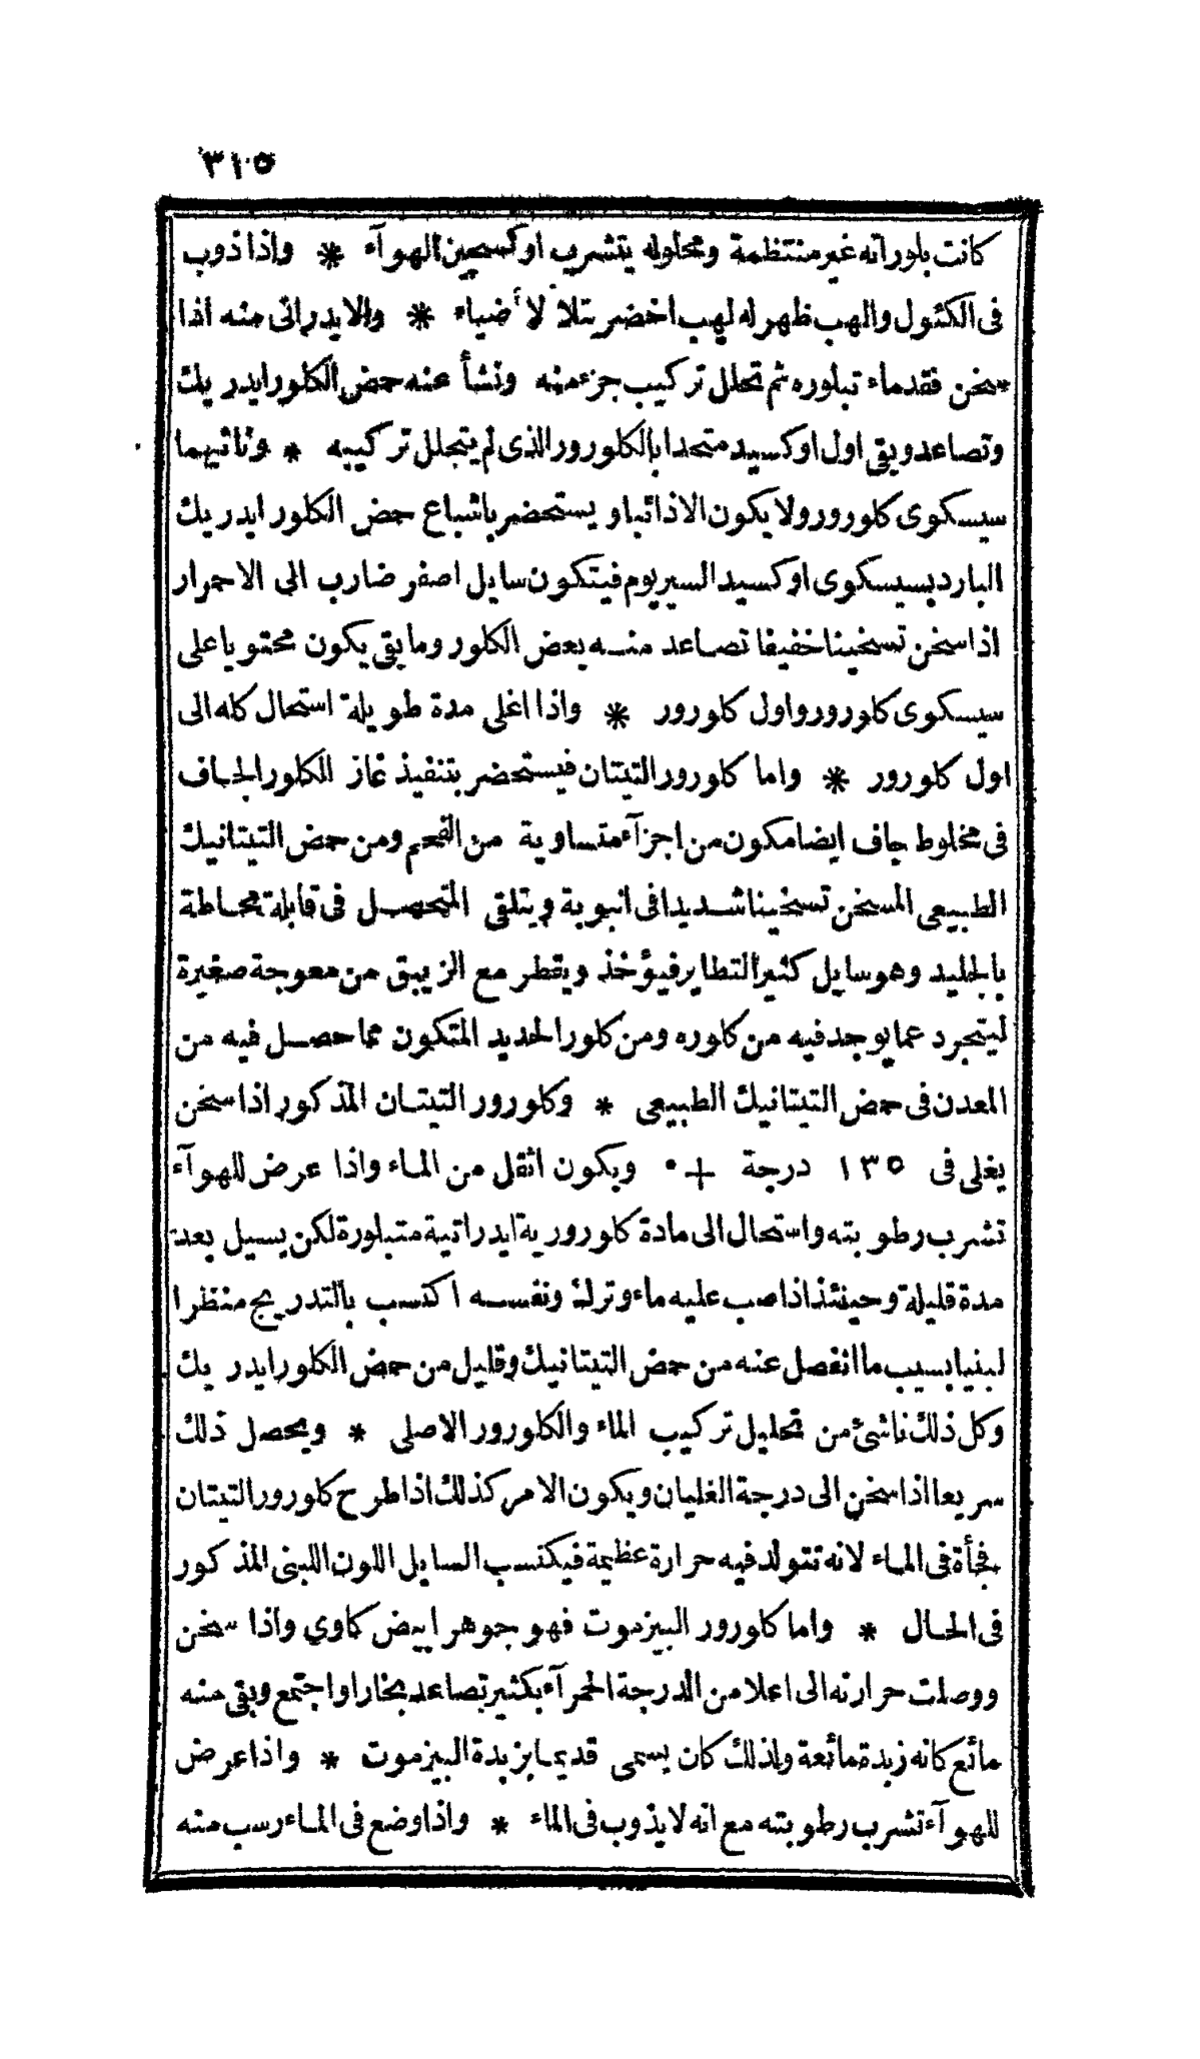 ٣١٥
كانت بلوراته غير منتظمة ومحلوله يتشرب اوكسجين الهوآء * واذا ذوب
فى الكئول والهب ظهر له لهب اخضر يتلأ لأ ضياء * والايدراتى منه اذا
سخن فقد ماء تبلوره ثم تحلل تركيب جزء منه ونشأ عنه حمض الكلور ايدريك
وتصاعد وبقى اول اوكسيد متحدا بالكلورور الذى لم يتحلل تركيبه * وثانيهما
سيسكوى كلورور ولا يكون الا ذائبا ويستحضر باشباع حمض الكلور ايدريك
البارد بسيسكوى اوكسيد السيريوم فيتكون سايل اصفر ضارب الى الاحمرار
اذا سخن تسخينا خفيفا تصاعد منه بعض الكلور وما بقى يكون محتويا على
سيسكوى كلورور واول كلورور * واذا اغلى مدة طويلة استحال كله الى
اول كلورور * واما كلورور التيتان فيستحضر بتنفيذ غاز الكلور الجاف
فى مخلوط جاف ايضا مكون من اجزآء متساوية من الفحم ومن حمض التيتانيك
الطبيعى المسخن تسخينا شديدا فى انبوبة ويتلقى المتحصل فى قابلة محاطة
بالجليد وهو سايل كثير التطاير فيؤخذ ويقطر مع الزيبق من معوجة صغيرة
ليتجرد عما يوجد فيه من كلوره ومن كلور الحديد المتكون مما حصل فيه من
المعدن فى حمض التيتانيك الطبيعى * وكلورور التيتان المذكور اذا سخن
يغلى فى ١٣٥ درجة +٠ ويكون اثقل من الماء واذا عرض للهوآء
تشرب رطوبته واستحال الى مادة كلورورية ايدراتية متبلورة لكن يسيل بعد
مدة قليلة وحينئذ اذا صب عليه ماء وترك ونفسه اكتسب بالتدريج منظرا
لبنيا بسبب ما انفصل عنه من حمض التيتانيك وقليل من حمض الكلور ايدريك
وكل ذلك ناشئ من تحليل تركيب الماء والكلورور الاصلى * ويحصل ذلك
سريعا اذا سخن الى درجة الغليان ويكون الامر كذلك اذا طرح كلورور التيتان
فجأة فى الماء لانه تتولد فيه حرارة عظيمة فيكتسب السايل اللون اللبنى المذكور
فى الحال * واما كلورور البيزموت فهو جوهر ابيض كاوي واذا سخن
ووصلت حرارته الى اعلا من الدرجة الحمرآء بكثير تصاعد بخارا واجتمع وبقى منه
مائع كانه زبدة مائعة ولذلك كان يسمى قديما بزبدة البيزموت * واذا عرض
للهوآء تشرب رطوبته مع انه لا يذوب فى الماء * واذا وضع فى الماء رسب منه